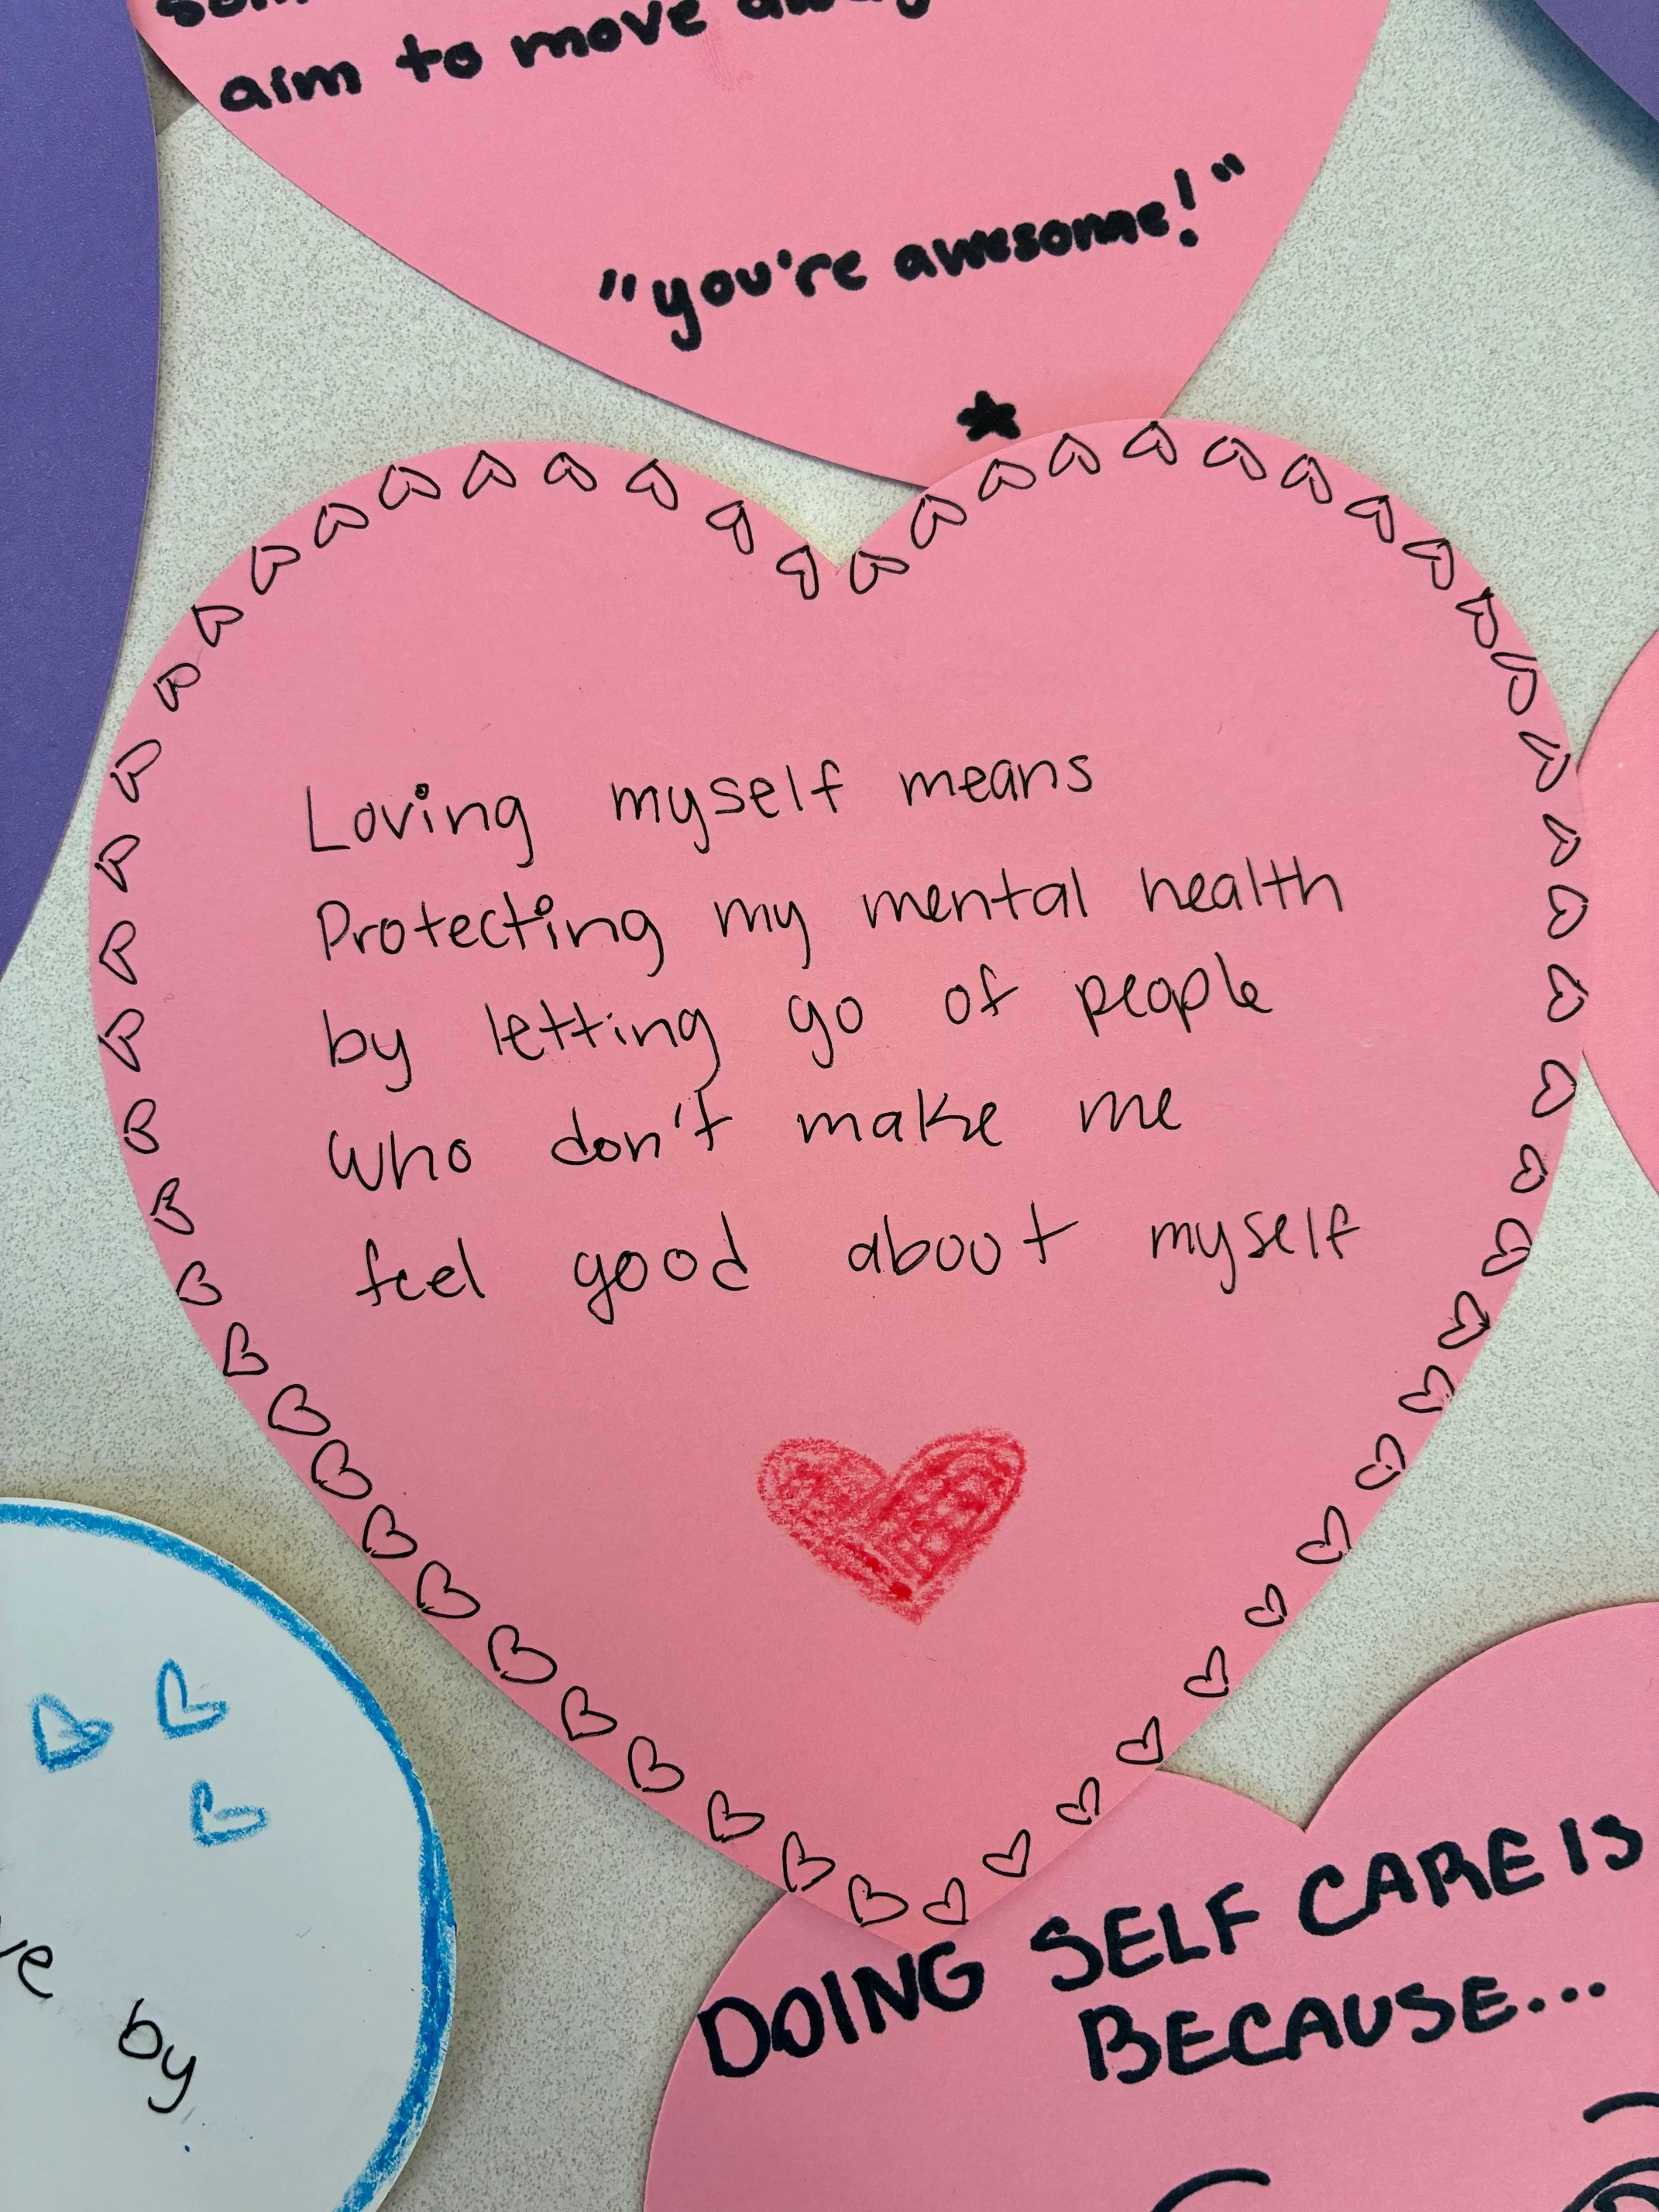 aim to move away
"you're awesome!"
Loving myself means
Protecting my mental health
by letting go of people
who don't make me
feel good about myself
by
DOING SELF CARE IS
BECAUSE...